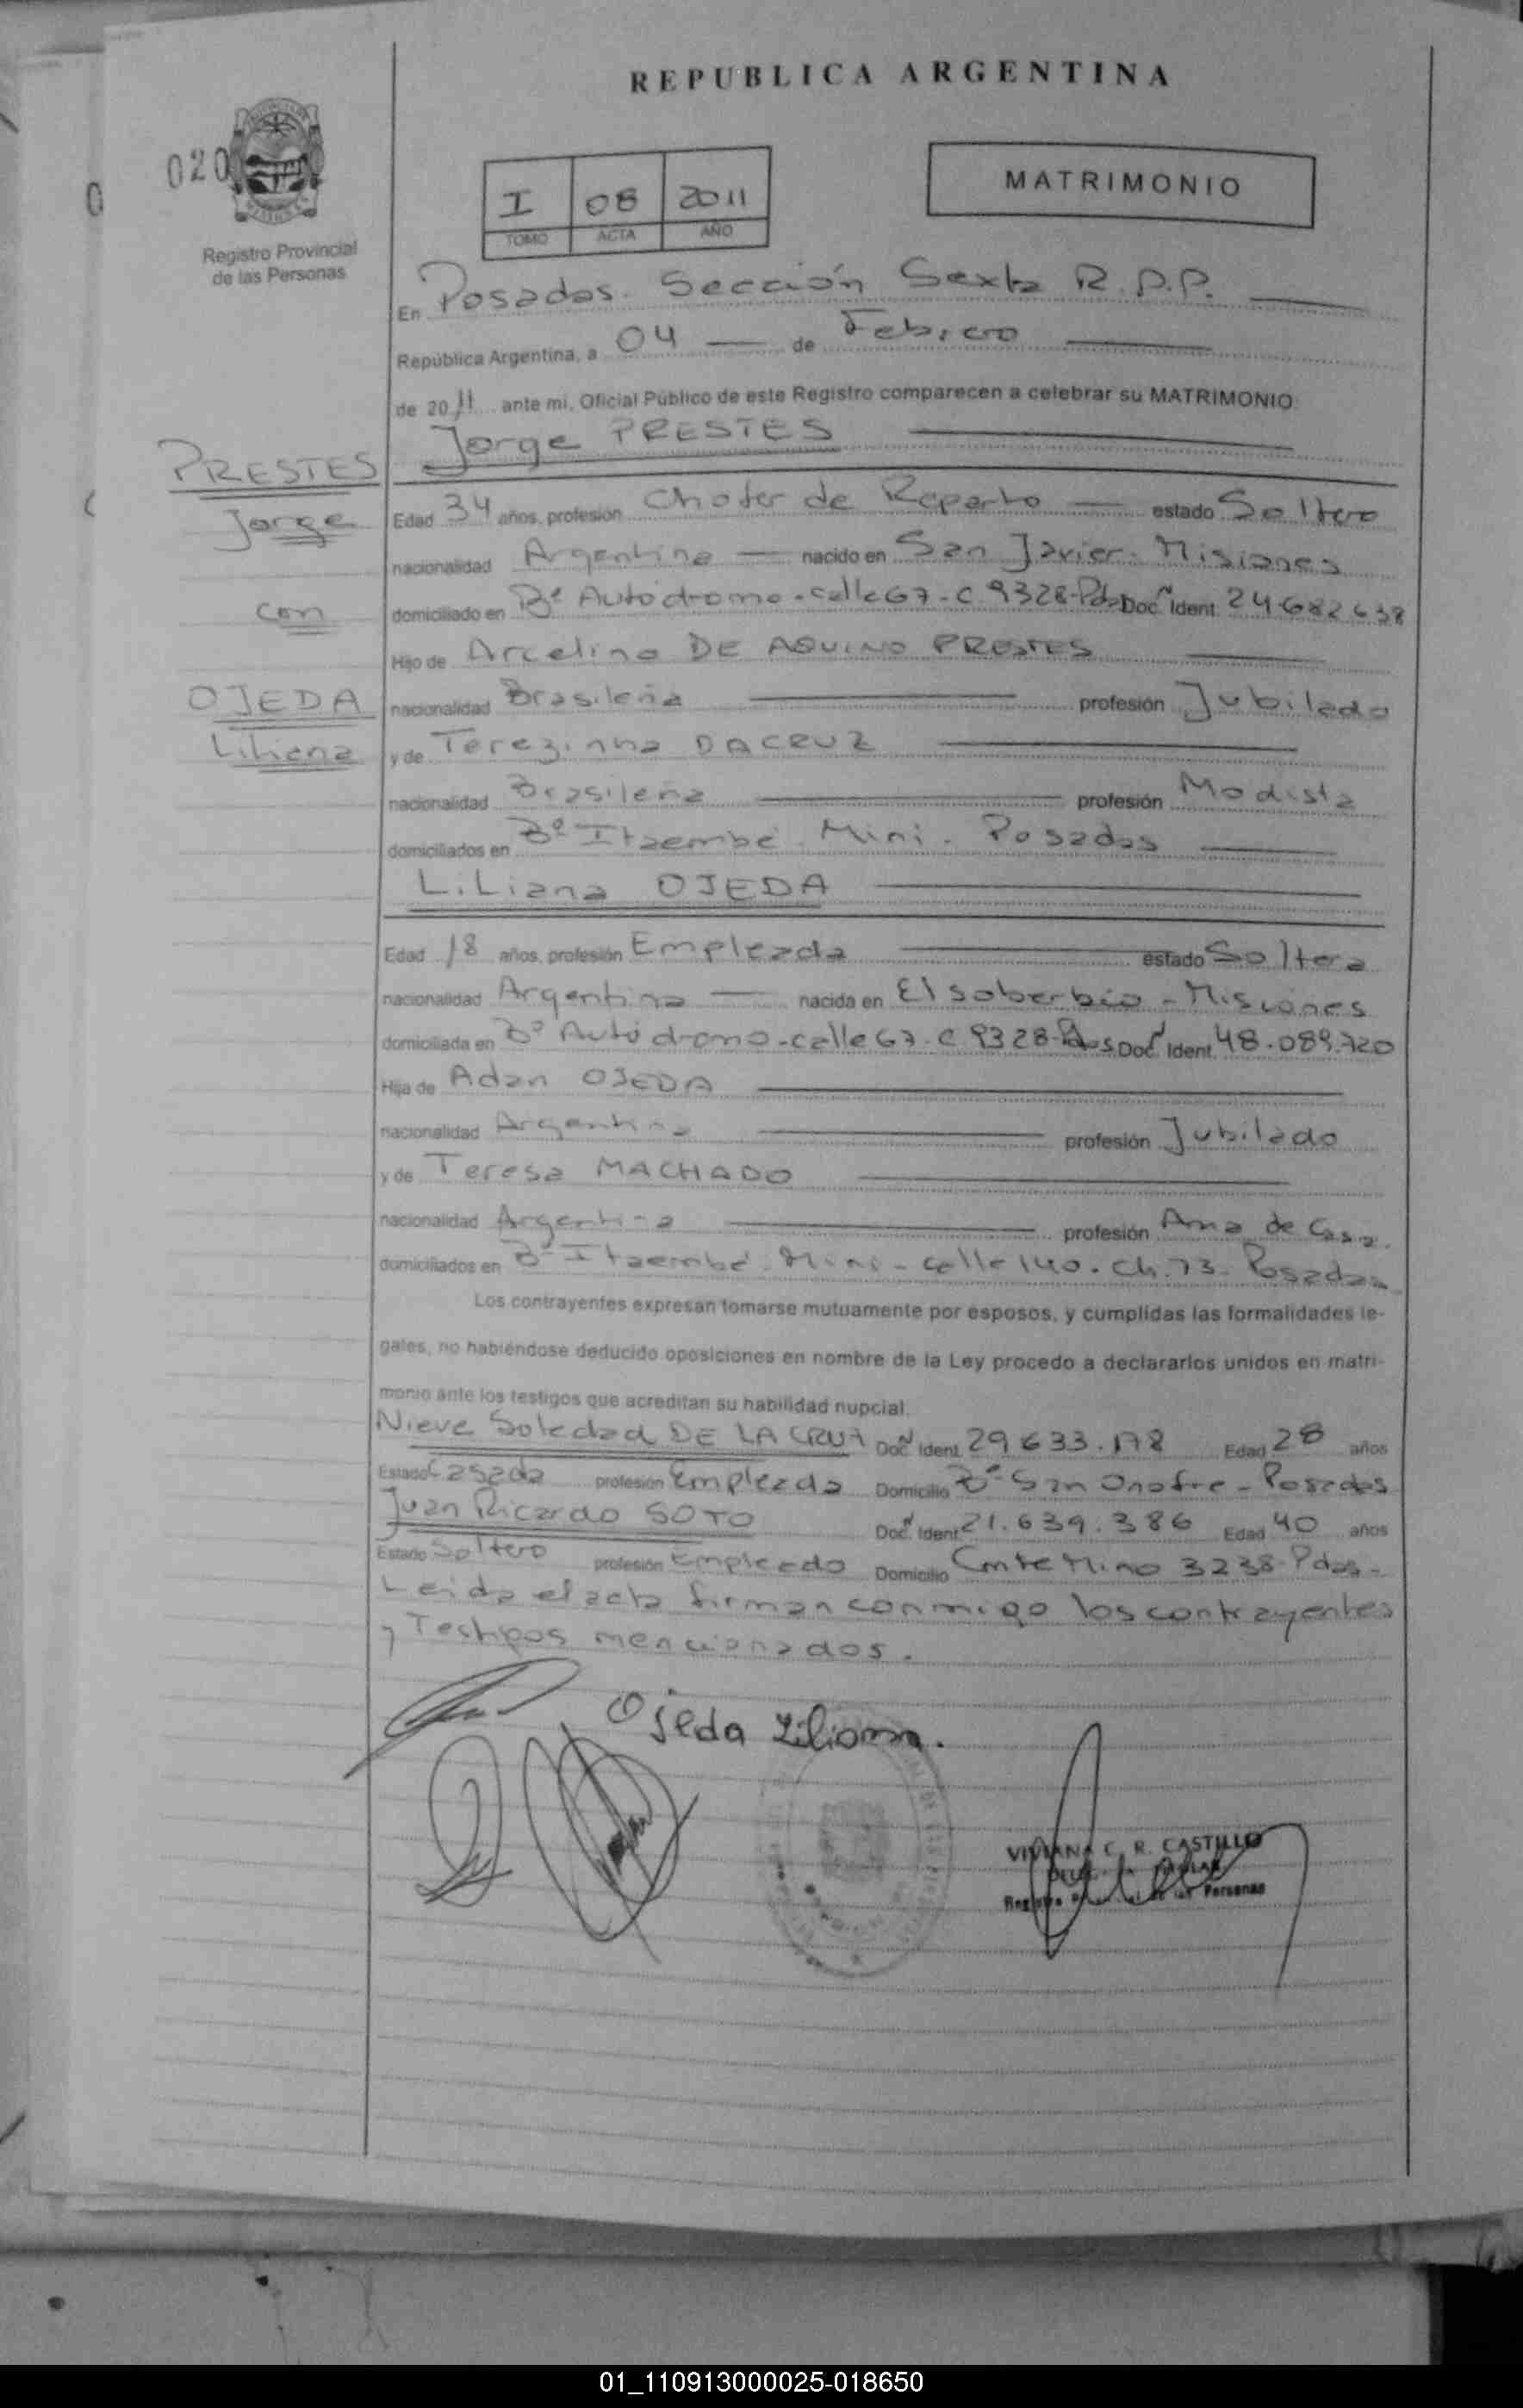 REPUBLICA ARGENTINA
020
0
I 08 2011
TOMO ACTA AÑO
MATRIMONIO
Registro Provincial
de las Personas
En Posadas. Sección Sexta R.P.P.
República Argentina, a 04 de Febrero
de 2011 ante mi, Oficial Público de este Registro comparecen a celebrar su MATRIMONIO:
Jorge PRESTES
PRESTES
Jorge
con
OJEDA
Liliana
Edad 34 años, profesión Chofer de Reparto estado Soltero
nacionalidad Argentina nacido en San Javier. Misiones
domiciliado en Bº Autódromo - calle 67 - C 9328 - Pdas Doc Nº Ident. 24.682.638
Hijo de Arcelino DE AQUINO PRESTES
nacionalidad Brasileña profesión Jubilado
y de Terezinha DACRUZ
nacionalidad Brasileña profesión Modista
domiciliados en Bº Itaembé. Mini. Posadas
Liliana OJEDA
Edad 18 años, profesión Empleada estado Soltera
nacionalidad Argentina nacida en El soberbio - Misiones
domiciliada en Bº Autódromo - calle 67 - C 9328 - Pdas Doc Nº Ident. 48.089.720
Hija de Adan OJEDA
nacionalidad Argentina profesión Jubilado
y de Teresa MACHADO
nacionalidad Argentina profesión Ama de Casa.
domiciliados en Bº Itaembé. Mini - calle 140. Ch. 73. Posadas
Los contrayentes expresan tomarse mutuamente por esposos, y cumplidas las formalidades le-
gales, no habiéndose deducido oposiciones en nombre de la Ley procedo a declararlos unidos en matri-
monio ante los testigos que acreditan su habilidad nupcial.
Nieve Soledad DE LA CRUZ Doc Nº Ident. 29.633.178 Edad 28 años
Estado Casada profesión Empleada Domicilio Bº San Onofre - Posadas
Juan Ricardo SOTO Doc Nº Ident. 21.639.386 Edad 40 años
Estado Soltero profesión Empleado Domicilio Cmte Mino 3238 - Pdas -
Leida el acta firman conmigo los contrayentes
y Testigos mencionados.
Ojeda Liliana.
VIVIANA C. R. CASTILLO
de las Personas
01_110913000025-018650